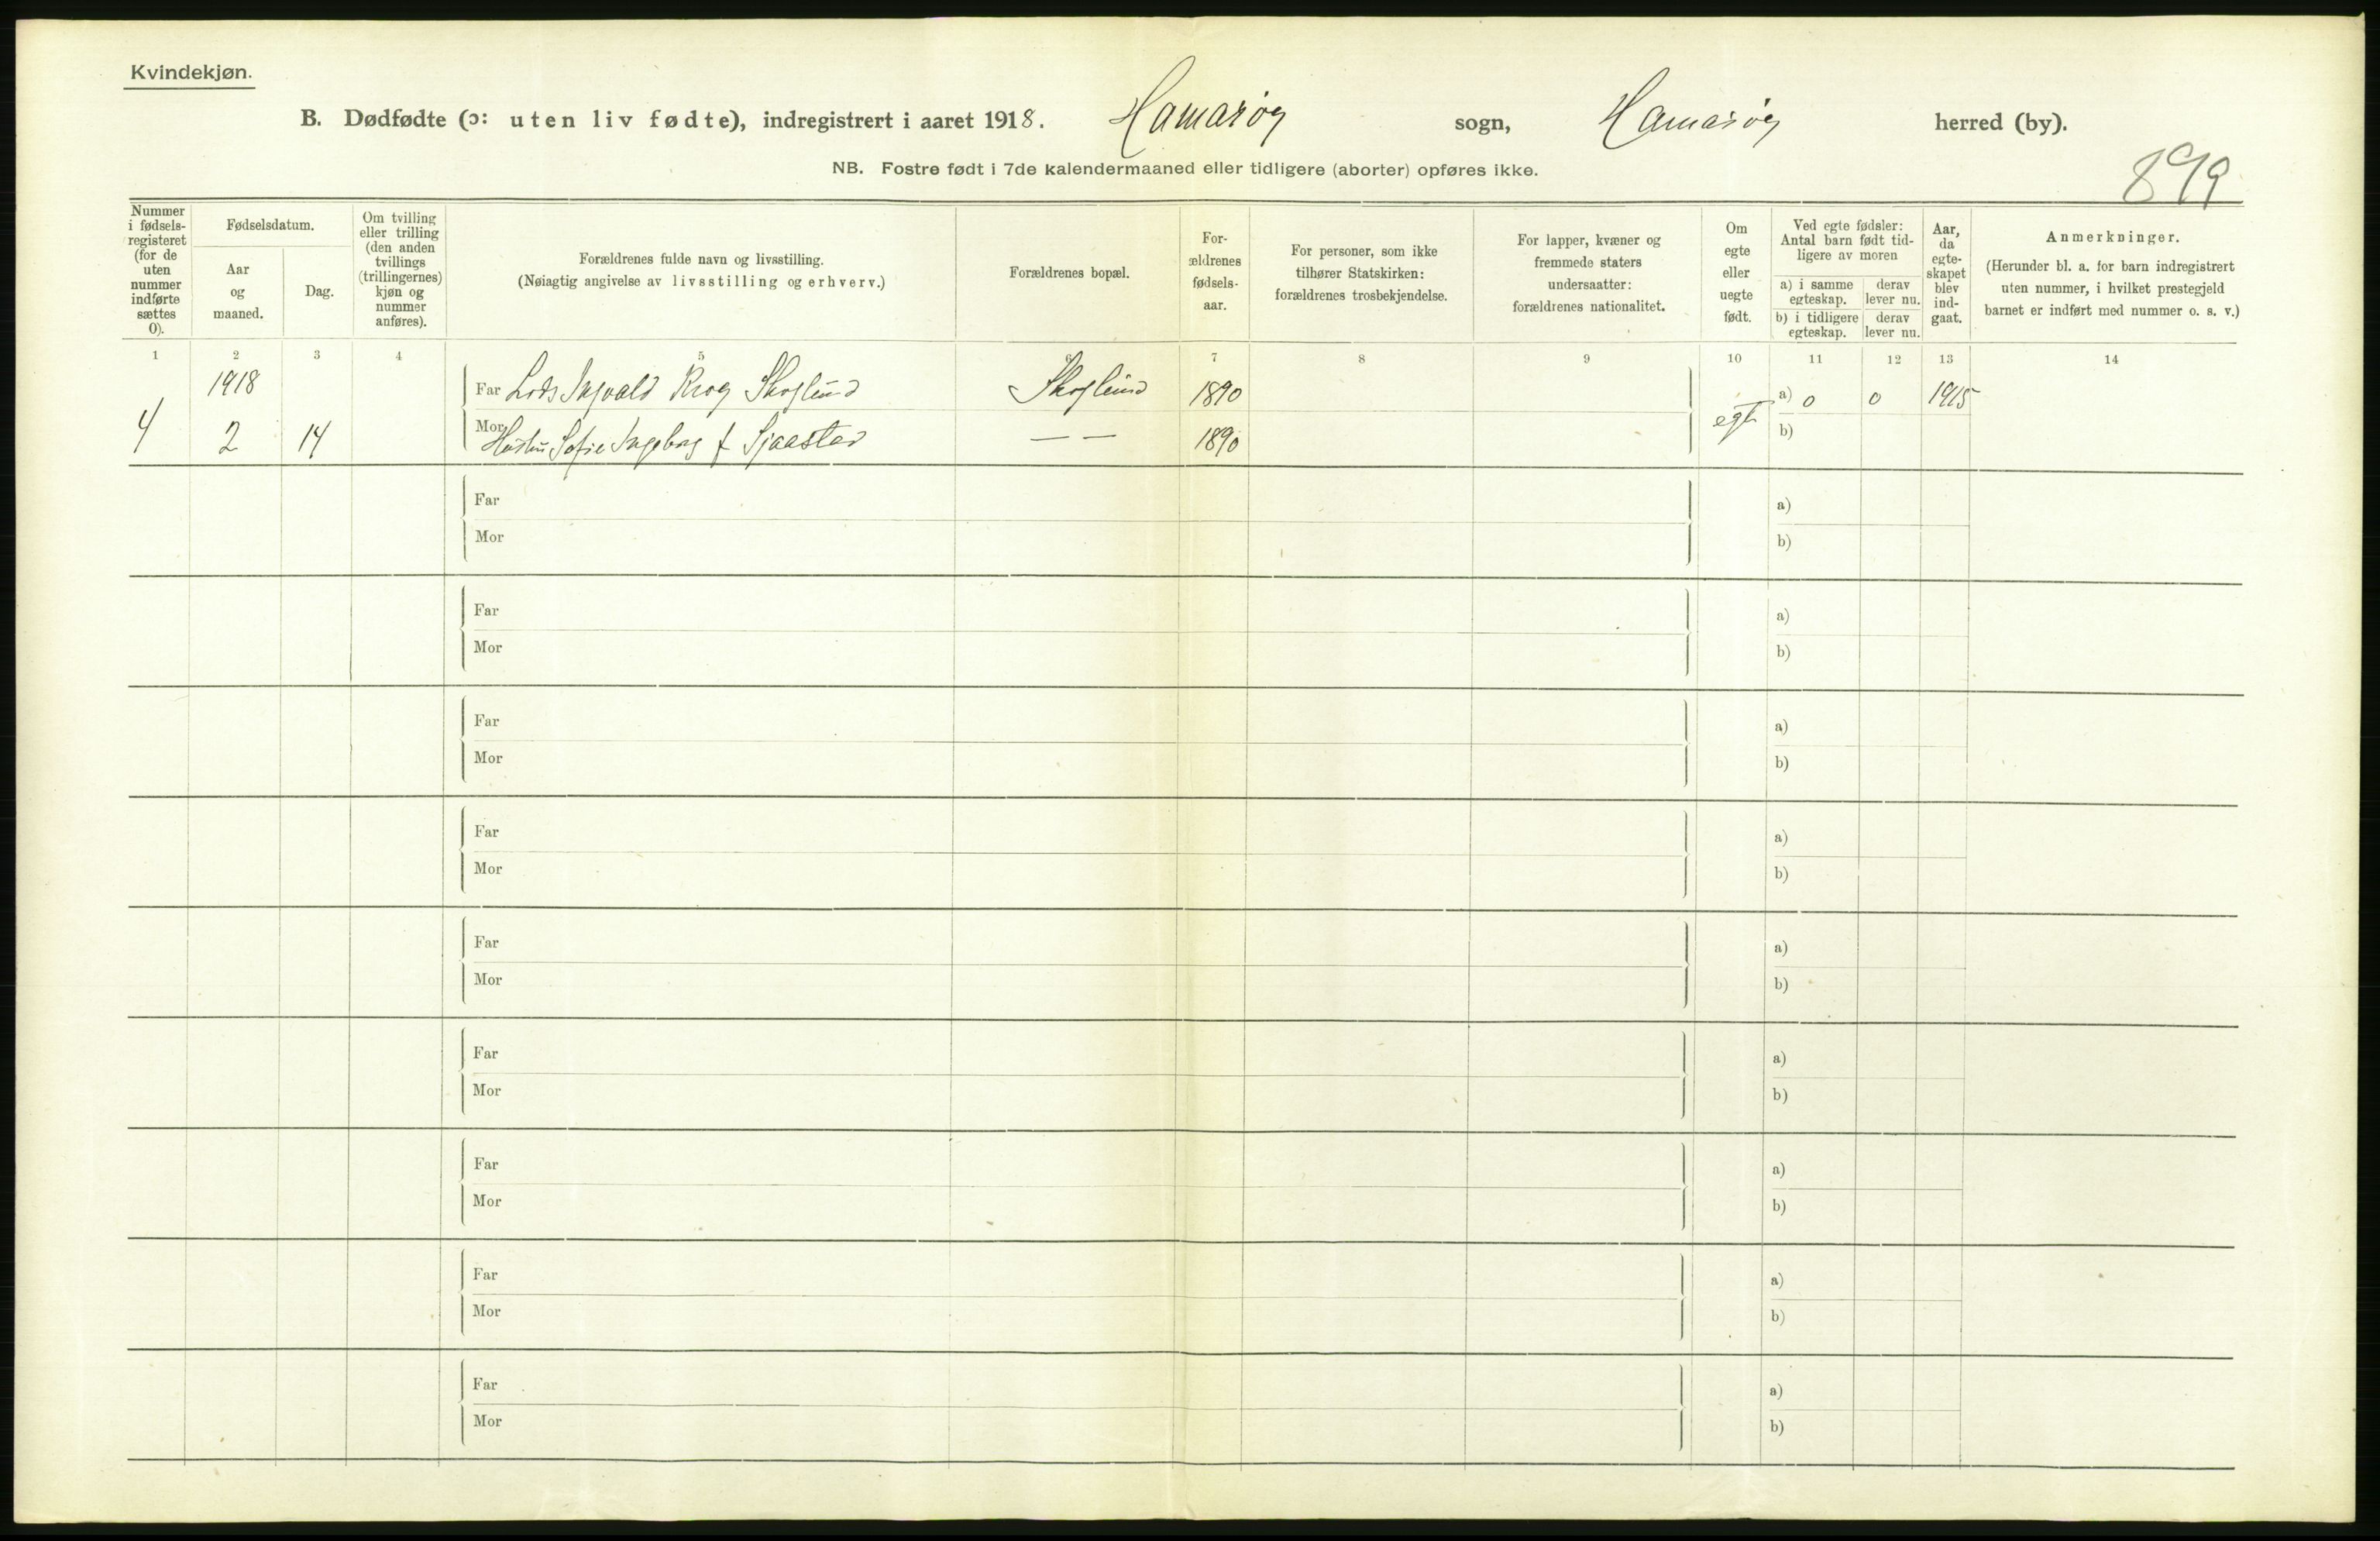 Kvindekjøn.
B. Dødfødte (ɔ: uten liv fødte), indregistrert i aaret 1918. Hamarøy sogn, Hamarøy herred (by).
NB. Fostre født i 7de kalendermaaned eller tidligere (aborter) opføres ikke.
899
Nummer
i fødsels-
registeret
(for de
uten
nummer
indførte
sættes
0).
Fødselsdatum.
Aar
og
maaned.
Dag.
Om tvilling
eller trilling
(den anden
tvillings
(trillingernes)
kjøn og
nummer
anføres).
Forældrenes fulde navn og livsstilling.
(Nøiagtig angivelse av livsstilling og erhverv.)
Forældrenes bopæl.
For-
ældrenes
fødsels-
aar.
For personer, som ikke
tilhører Statskirken:
forældrenes trosbekjendelse.
For lapper, kvæner og
fremmede staters
undersaatter:
forældrenes nationalitet.
Om
egte
eller
uegte
født.
Ved egte fødsler:
Antal barn født tid-
ligere av moren
a) i samme
egteskap.
derav
lever nu.
b) i tidligere
egteskap.
derav
lever nu.
Aar,
da
egte-
skapet
blev
ind-
gaat.
Anmerkninger.
(Herunder bl. a. for barn indregistrert
uten nummer, i hvilket prestegjeld
barnet er indført med nummer o. s. v.)
1 2 3 4 5 6 7 8 9 10 11 12 13 14
1918
Far Lods Ingvald Krog Skoglund Skoglund 1890 a) 0 0 1915
4 2 14 Mor Hustru Sofie Ingeborg f Sjaastad — — 1890 egte b)
Far a)
Mor b)
Far a)
Mor b)
Far a)
Mor b)
Far a)
Mor b)
Far a)
Mor b)
Far a)
Mor b)
Far a)
Mor b)
Far a)
Mor b)
Far a)
Mor b)